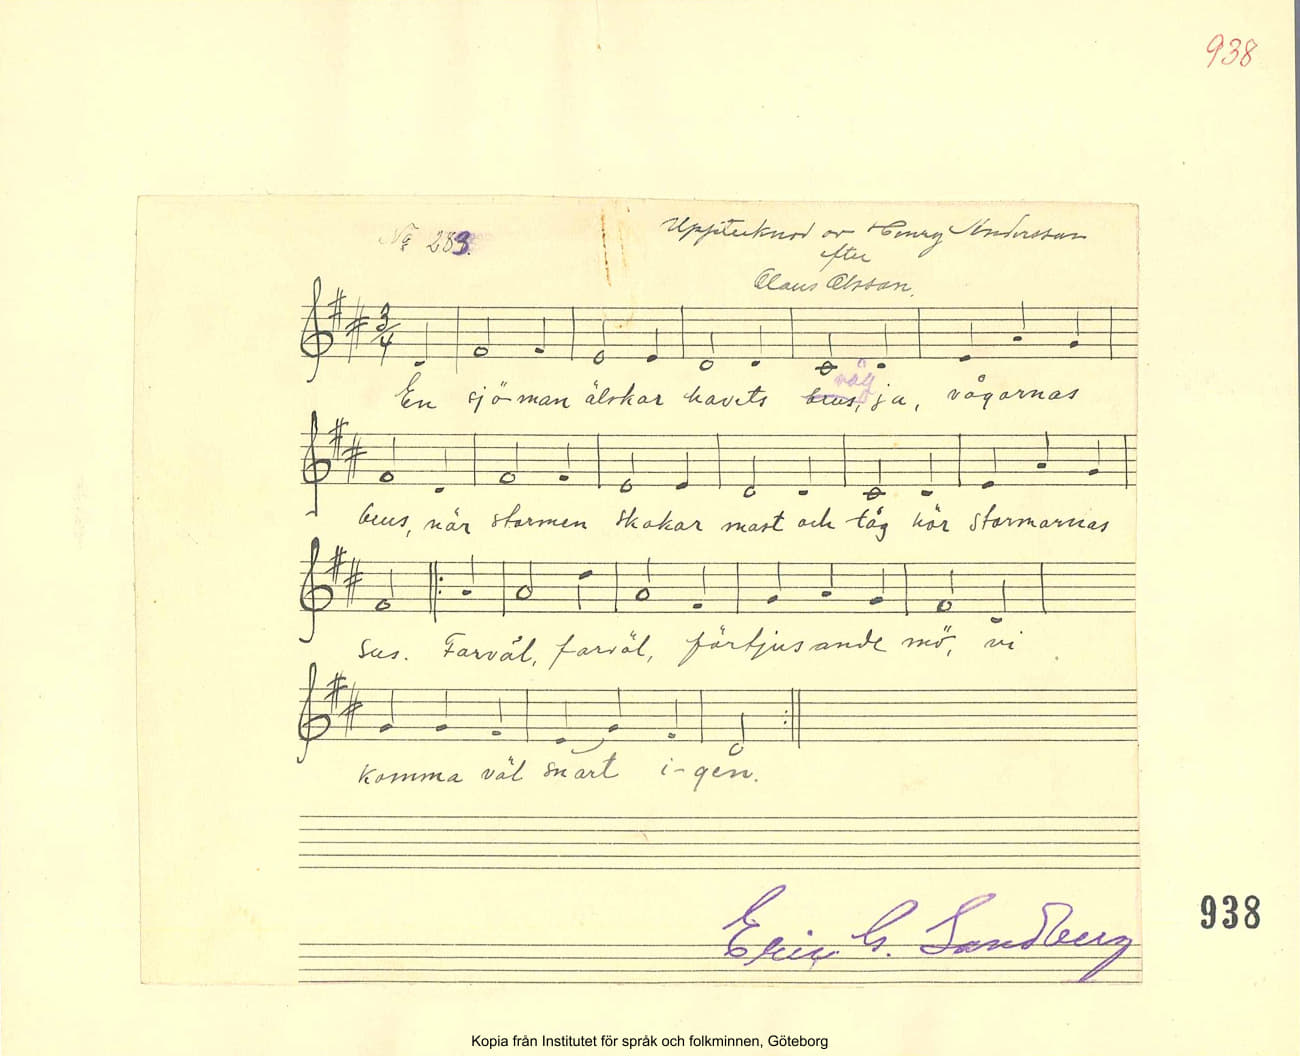 938
№ 283.
Upptecknad av Henry Andersson
efter
Claus Olsson.
3/4
våg
En sjö-man älskar havets brus, ja, vågornas
brus, när stormen skakar mast och tåg hör stormarnas
sus. Farväl, farväl, förtjusande mö, vi
komma väl snart i-gen.
Eric G. Sandberg
938
Kopia från Institutet för språk och folkminnen, Göteborg